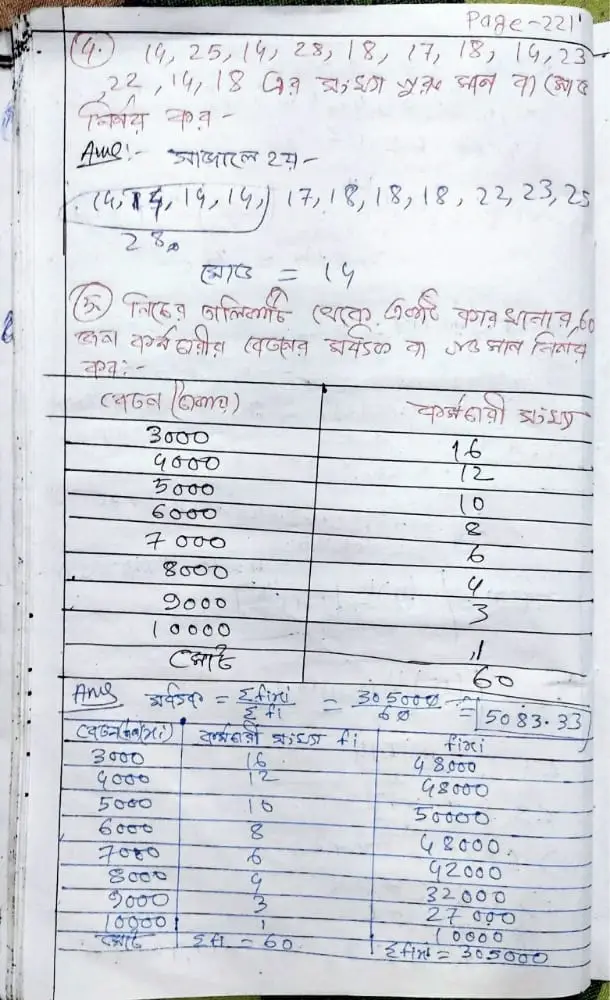 Page-221
4. 14, 25, 14, 28, 18, 17, 18, 14, 23
, 22, 14, 18 এর সংখ্যা গুরু মান বা মোড
নির্ণয় কর-
Ans:- সাজালে হয়-
14, 14, 14, 14, 17, 18, 18, 18, 22, 23, 25
28.
মোড = 14
নিচের তালিকাটি থেকে একটি কারখানার 60
জন কর্মচারীর বেতনের মধ্যক বা গড় মান নির্ণয়
কর:-
বেতন (টাকায়) কর্মচারী সংখ্যা
3000 16
4000 12
5000 10
6000 8
7000 6
8000 4
9000 3
10000 1
মোট 60
Ans মধ্যক = Σfixi/Σfi = 305000/60 = 5083.33
কর্মচারী সংখ্যা fi fixi
3000 16 48000
4000 12 48000
5000 10 50000
6000 8 48000
7000 6 42000
8000 4 32000
9000 3 27000
10000 1 10000
মোট Σfi = 60 Σfixi = 305000